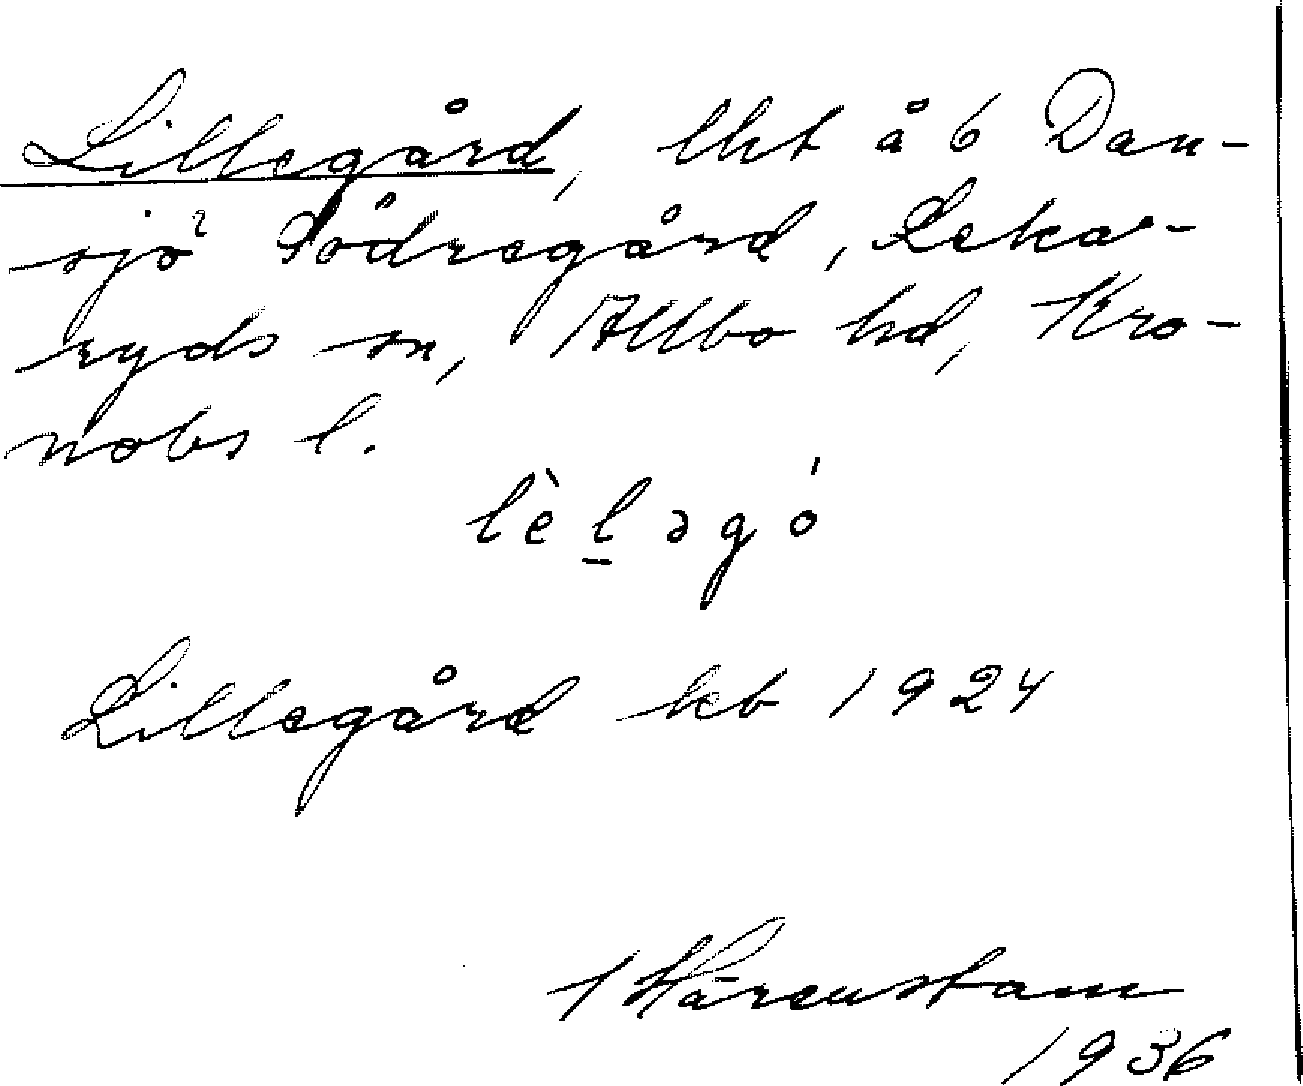 Lillegård, lht å 6 Dan-
sjö Södregård, Leka-
ryds sn, Allbo hd, Kro-
nobs l.
lèḻəgó
Lillegård kb 1924
Hårenstam
1936